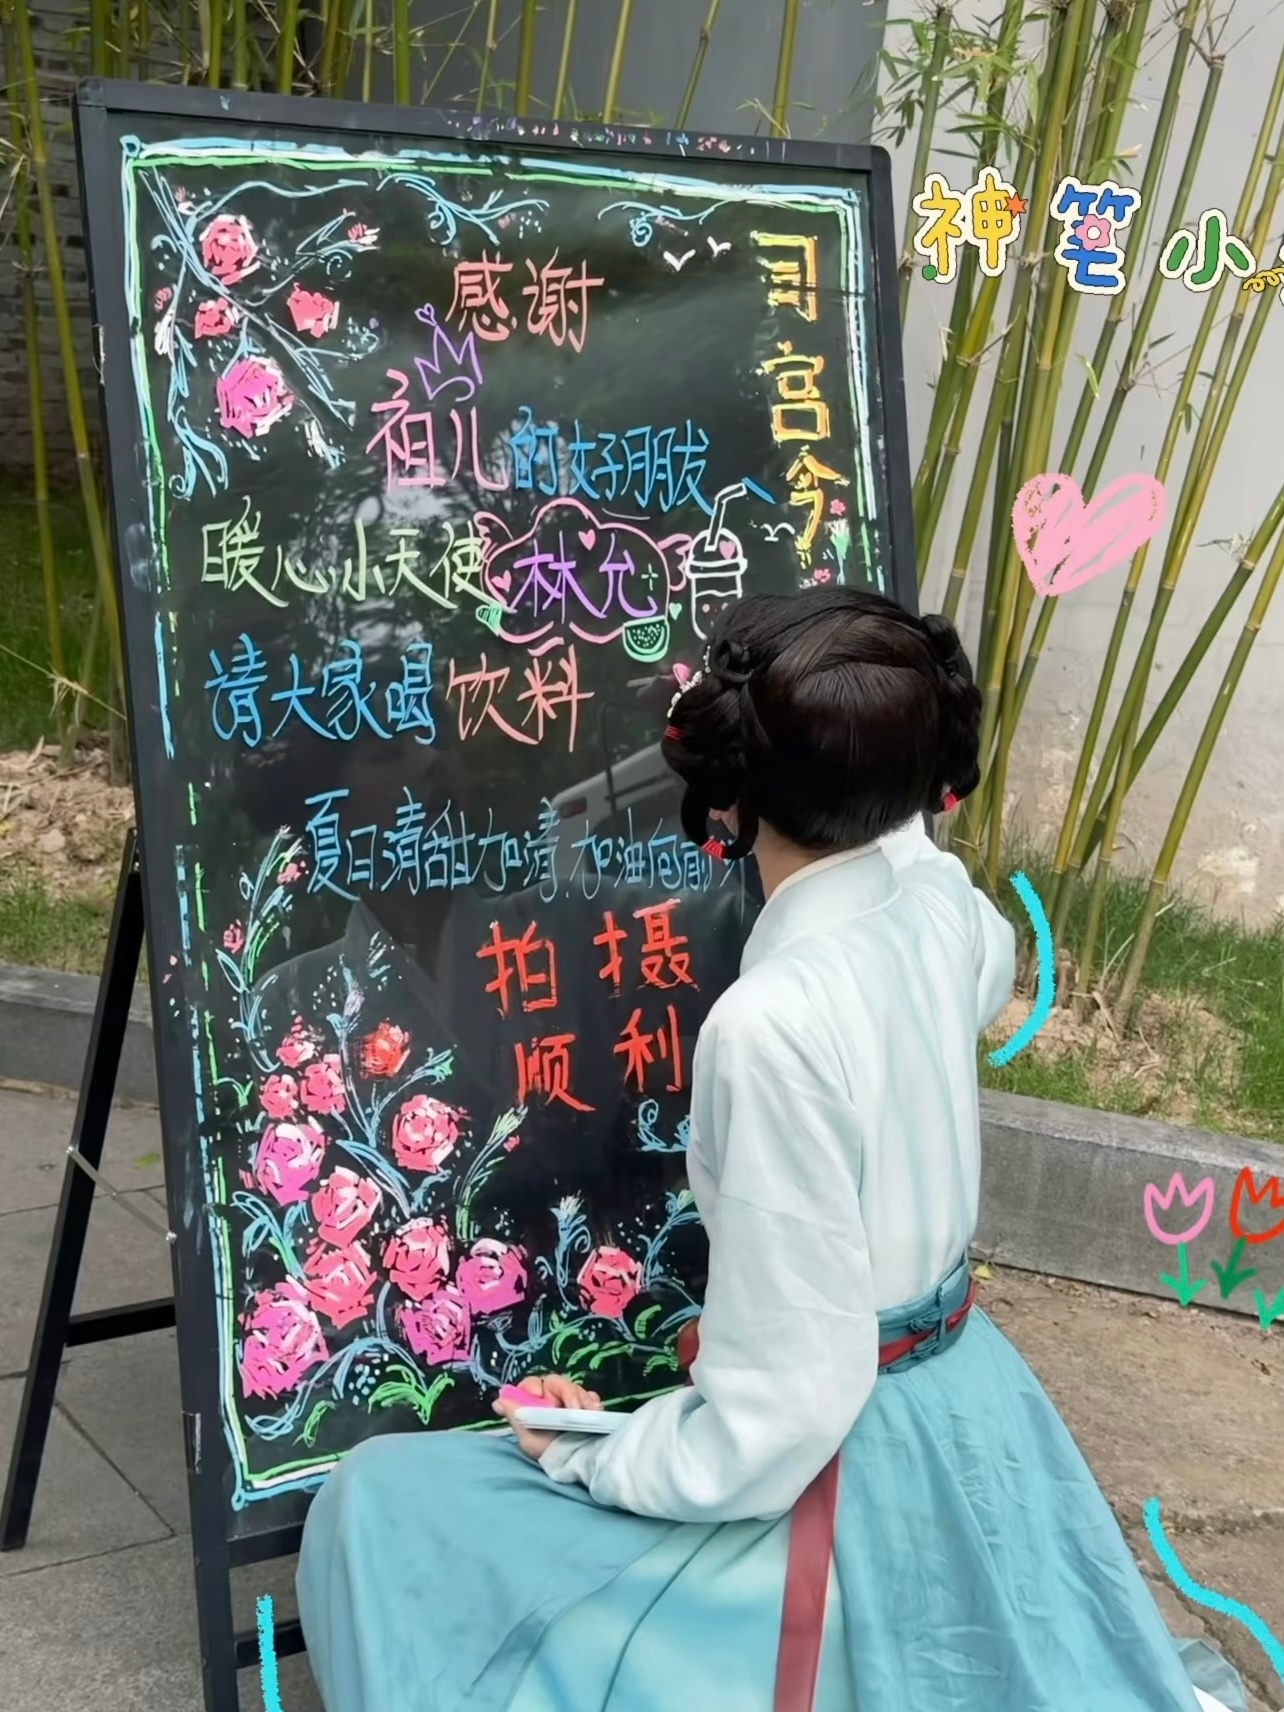 神笔小
司宫令
感谢
祖儿的好朋友、
暖心小天使林允
请大家喝饮料
夏日清甜加清.加油向前
拍摄
顺利